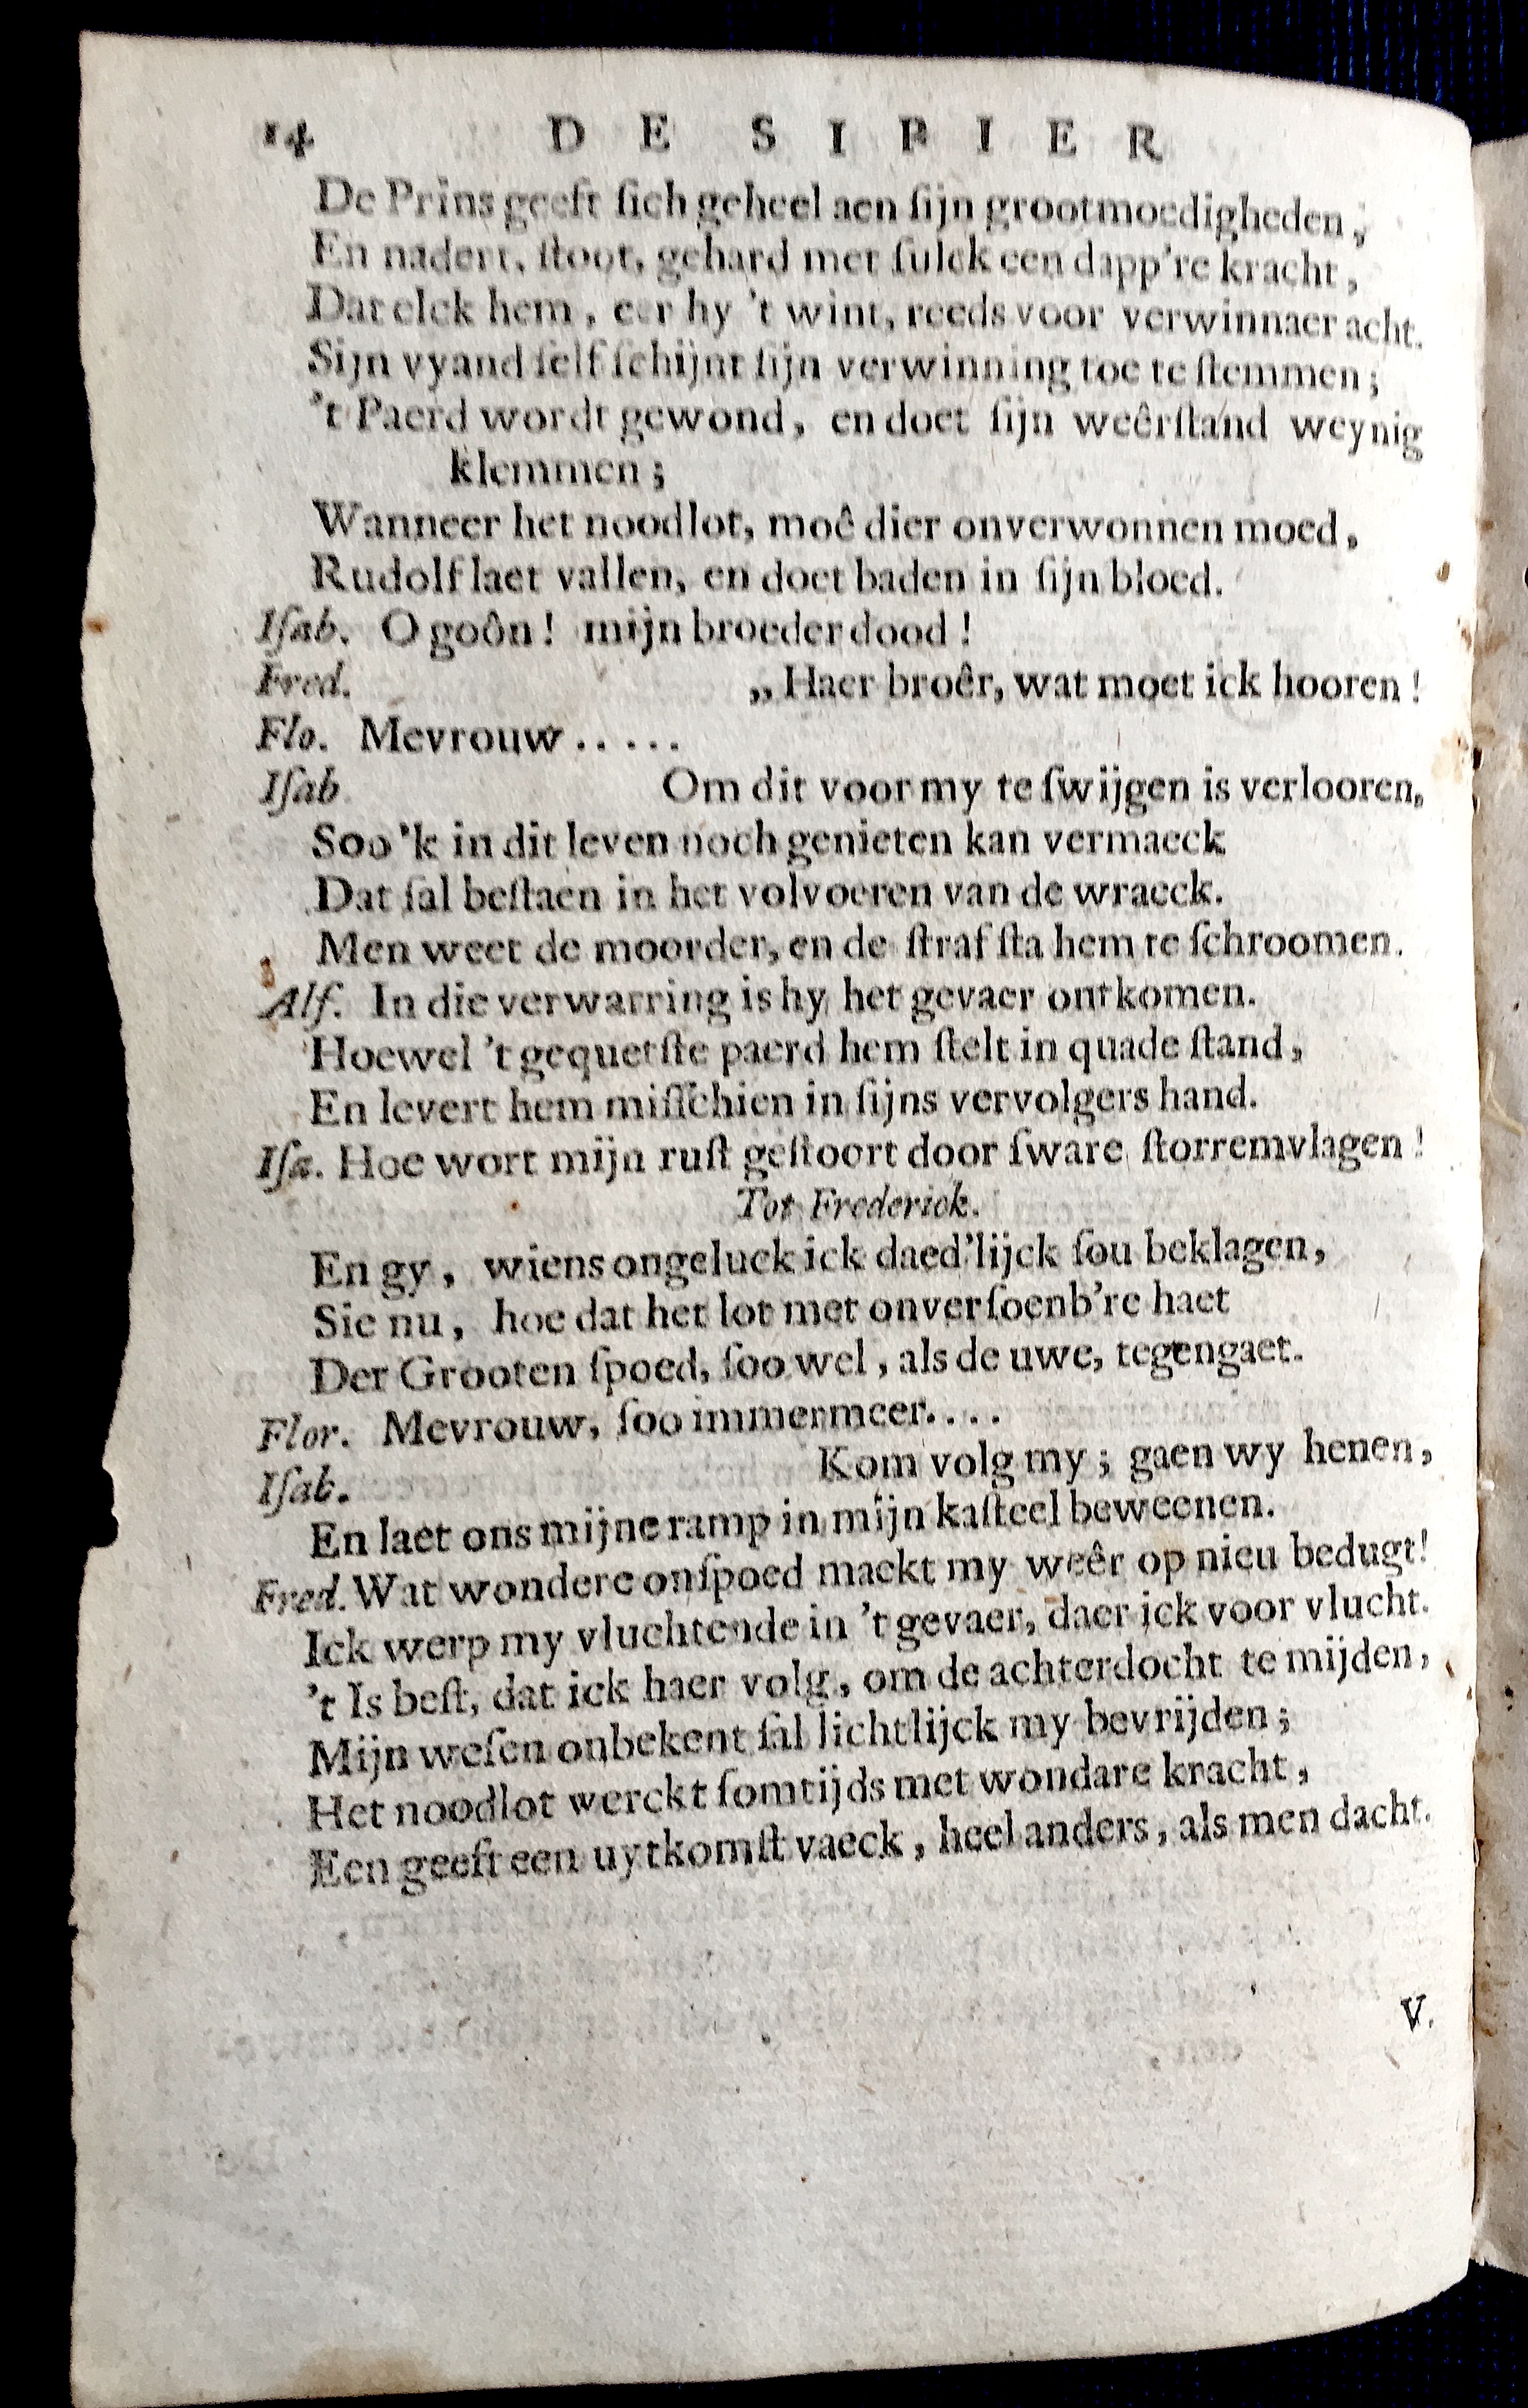 14 DE SIPIER
De Prins geeft ſich geheel aen ſijn grootmoedigheden,
En nadert, ſtoot, gehard met ſulck een dapp're kracht,
Dat elck hem, eer hy 't wint, reeds voor verwinnaer acht.
Sijn vyand ſelf ſchijnt ſijn verwinning toe te ſtemmen;
't Paerd wordt gewond, en doet ſijn weêrſtand weynig
klemmen;
Wanneer het noodlot, moê dier onverwonnen moed,
Rudolf laet vallen, en doet baden in ſijn bloed.
Iſab. O goôn! mijn broeder dood!
Fred. „Haer broêr, wat moet ick hooren!
Flo. Mevrouw.....
Iſab Om dit voor my te ſwijgen is verlooren,
Soo 'k in dit leven noch genieten kan vermaeck
Dat ſal beſtaen in het volvoeren van de wraeck.
Men weet de moorder, en de ſtraf ſta hem te ſchroomen.
Alf. In die verwarring is hy het gevaer ontkomen.
Hoewel 't gequetſte paerd hem ſtelt in quade ſtand,
En levert hem miſſchien in ſijns vervolgers hand.
Iſa. Hoe wort mijn ruſt geſtoort door ſware ſtorremvlagen!
Tot Frederick.
En gy, wiens ongeluck ick daed'lijck ſou beklagen,
Sie nu, hoe dat het lot met onverſoenb're haet
Der Grooten ſpoed, ſoo wel, als de uwe, tegengaet.
Flor. Mevrouw, ſoo immermeer....
Iſab. Kom volg my; gaen wy henen,
En laet ons mijne ramp in mijn kaſteel beweenen.
Fred. Wat wondere onſpoed maekt my weêr op nieu bedugt!
Ick werp my vluchtende in 't gevaer, daer ick voor vlucht.
't Is beſt, dat ick haer volg, om de achterdocht te mijden,
Mijn weſen onbekent ſal lichtlijck my bevrijden;
Het noodlot werckt ſomtijds met wondare kracht,
Een geeft een uytkomſt vaeck, heel anders, als men dacht.
V.